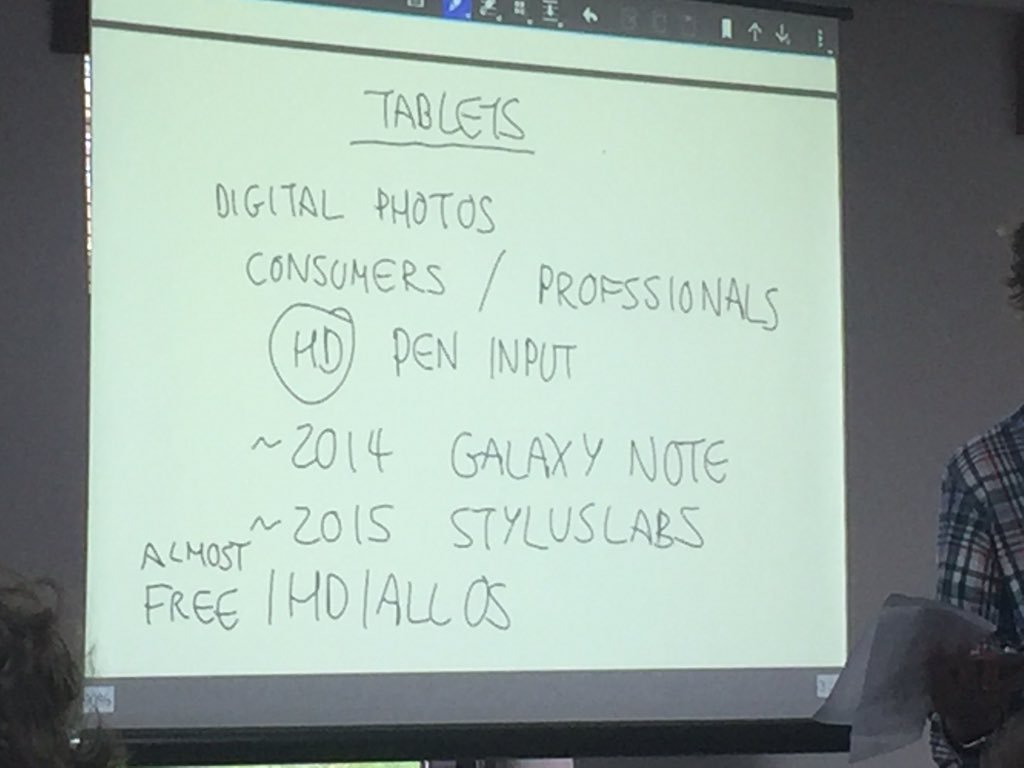 TABLETS
DIGITAL PHOTOS
CONSUMERS / PROFSSIONALS
HD PEN INPUT
~2014 GALAXY NOTE
~2015 STYLUSLABS
ALMOST
FREE / HD / ALL OS